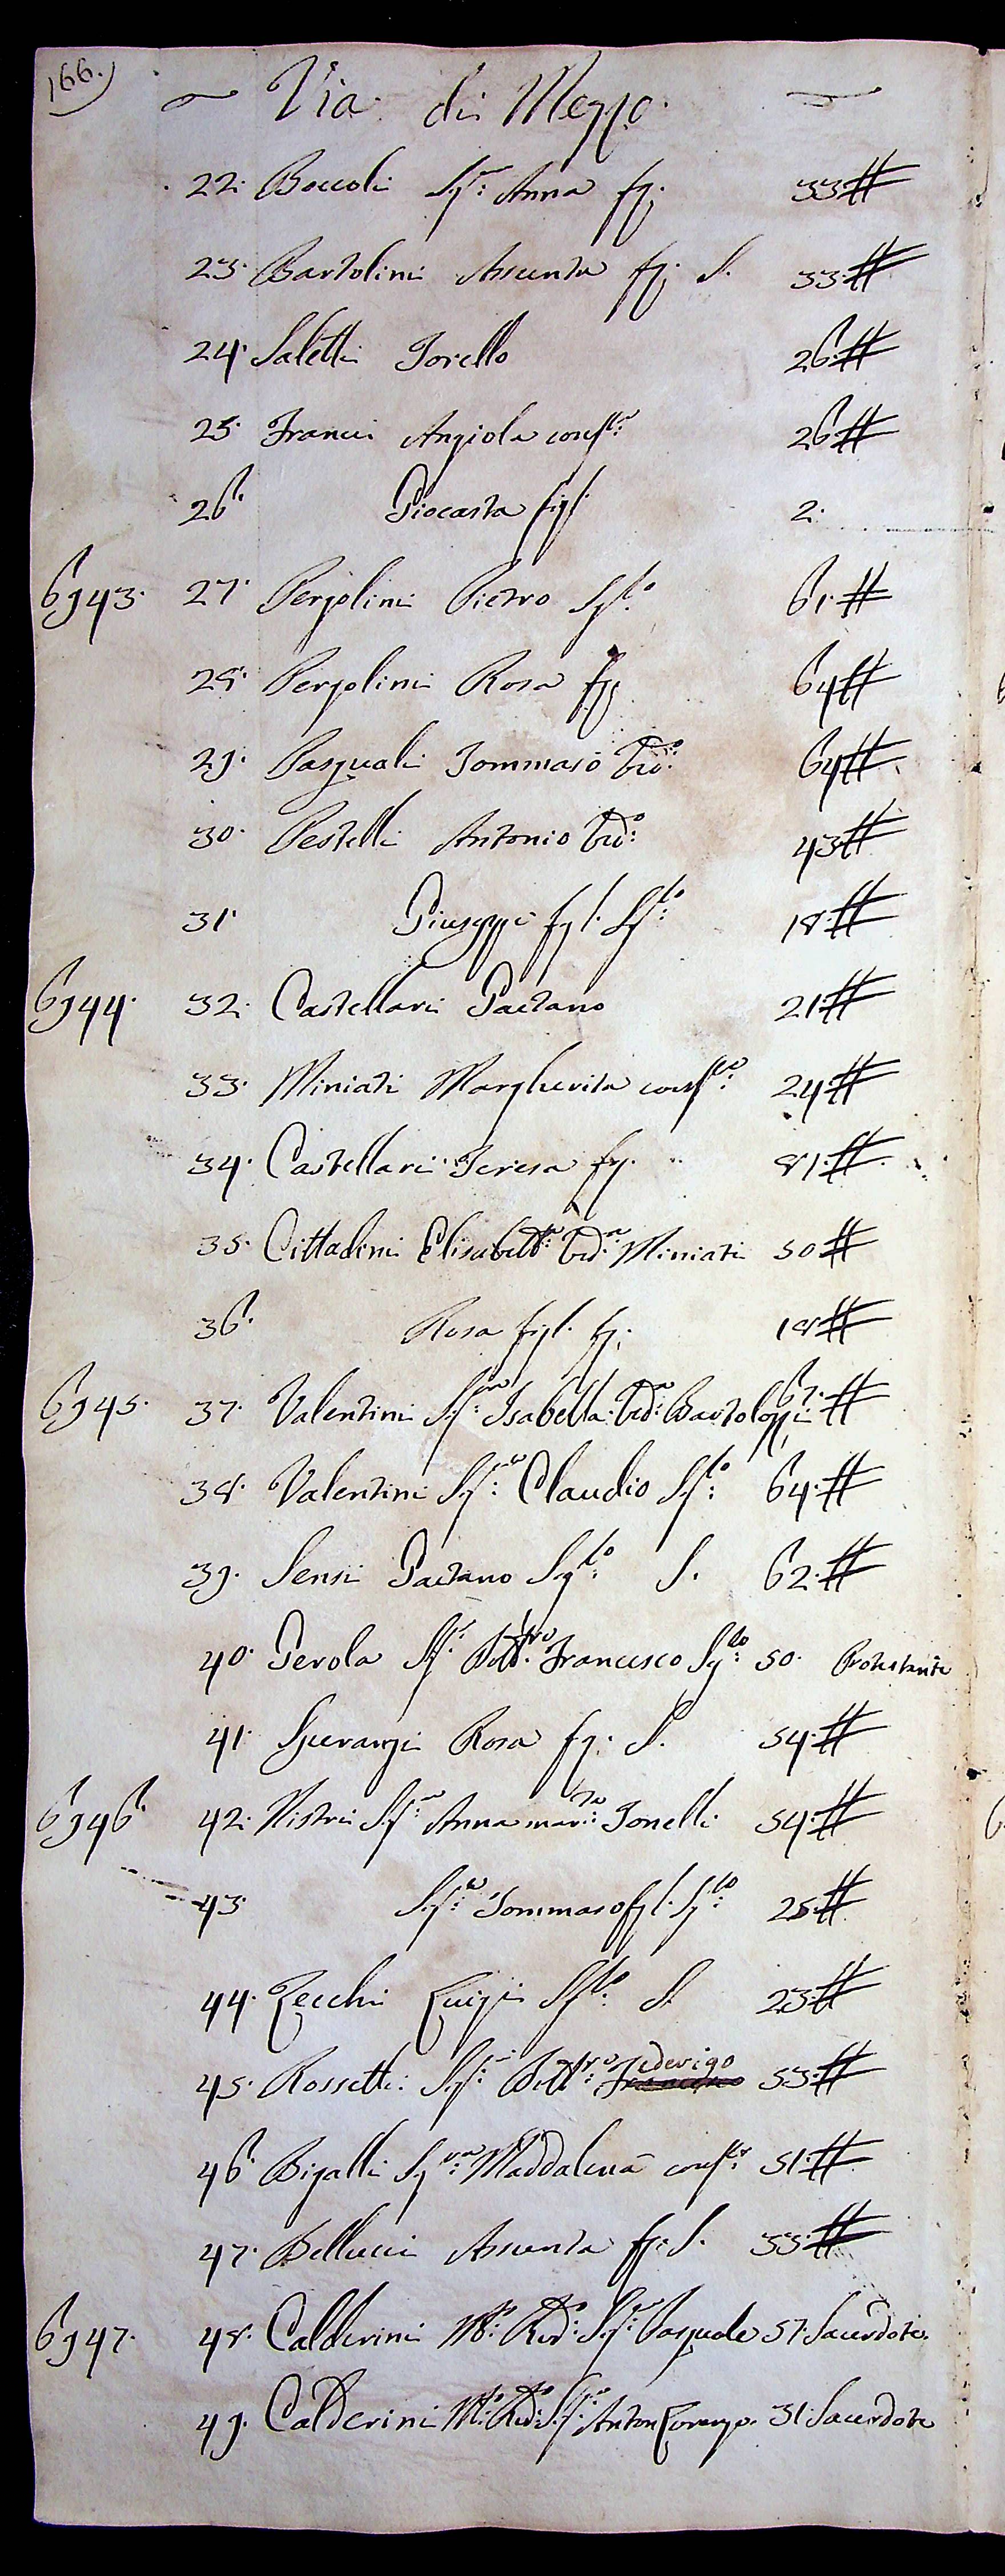 166.
Via di Mezzo
22. Boccoli Sig.ra Anna fg. 33 #
23. Bartolini Assunta fg. S. 33. #
24. Saletti Torello 26. #
25. Franci Angiola cons.te 26 #
26. Giocasta figl. 2.
6943. 27. Pergolini Pietro Sg.lo 61. #
28. Pergolini Rosa fg. 64 #
29. Pasquali Tommaso Ved.o 64 #
30. Pestelli Antonio Ved.o 43 #
31. Giuseppe fgl. Sg.lo 18. #
6944. 32. Castellari Gaetano 21. #
33. Miniati Margherita cons.te 24. #
34. Castellari Teresa fg. 81. #
35. Cittadini Elisabett.a Ved.a Miniati 50 #
36. Rosa figl. fg. 18 #
6945. 37. Valentini Sig.ra Isabella Ved.a Bartolozzi 67. #
38. Valentini Sig.re Claudio Sg.lo 64. #
39. Sensi Gaetano Sg.lo S. 62. #
40. Gerola Sig.r Dott.re Francesco Sg.lo 50. Protestante
41. Speranzi Rosa fg. S. 54. #
6946. 42. Nistri Sig.ra Anna mar.ta Tonelli 54. #
43. Sig.re Tommaso fgl. Sg.lo 25. #
44. Zecchi Luigi Sg.lo S. 23. #
45. Rossetti Sig.r Dott.re Federigo 53. #
46. Bigalli Sig.ra Maddalena cons.te 51. #
47. Bellucci Assunta fg. S. 33. #
6947. 48. Calderini M.to Rev.do Sig.re Pasquale 57. Sacerdote.
49. Calderini M.to Rev.do Sig.re Anton Lorenzo. 31. Sacerdote